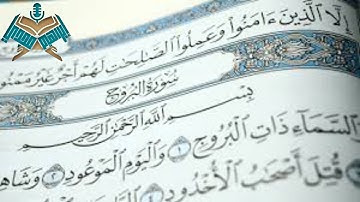 إِلَّا ٱلَّذِينَ ءَامَنُوا۟ وَعَمِلُوا۟ ٱلصَّٰلِحَٰتِ لَهُمْ أَجْرٌ غَيْرُ مَمْنُونٍ
سُورَةُ ٱلْبُرُوجِ
بِسْمِ ٱللَّهِ ٱلرَّحْمَٰنِ ٱلرَّحِيمِ
ٱلسَّمَآءِ ذَاتِ ٱلْبُرُوجِ ١ وَٱلْيَوْمِ ٱلْمَوْعُودِ ٢ وَشَاهِ
قُتِلَ أَصْحَٰبُ ٱلْأُخْدُودِ ٤